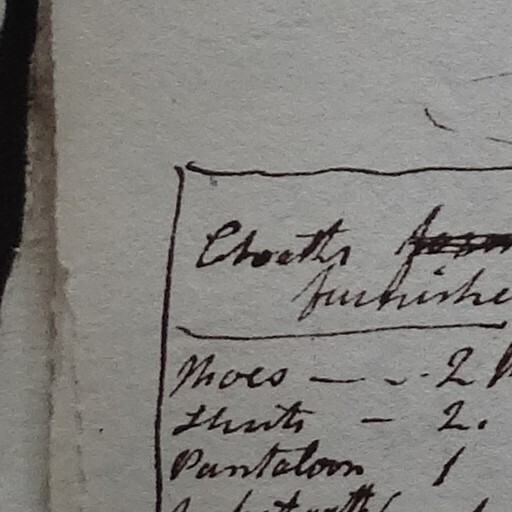 Cloaths
furnishe
Shoes - - 2
Shirts - 2.
Pantaloon 1